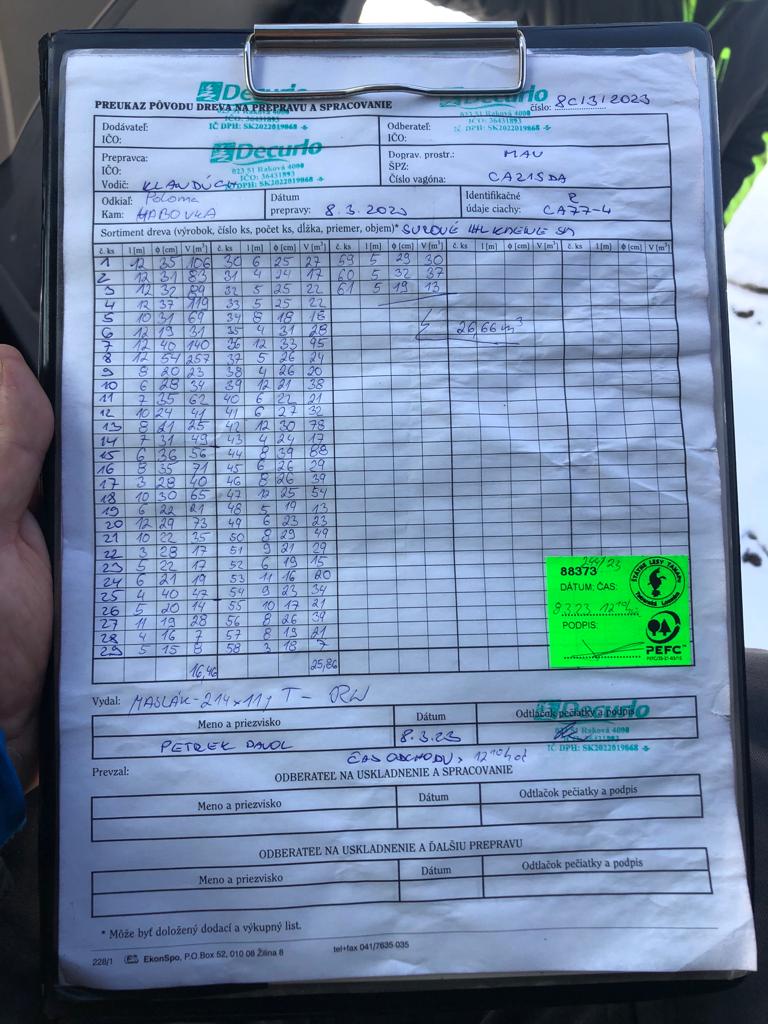 Decurlo
PREUKAZ PÔVODU DREVA NA PREPRAVU A SPRACOVANIE
číslo: 8C/3/2023
023 51 Raková 4000
IČO: 36431893
IČ DPH: SK2022019868
Dodávateľ:
IČO:
Odberateľ:
IČO:
Prepravca:
IČO:
Vodič: KLANDÚCH
Decurlo
023 51 Raková 4000
IČO: 36431893
IČ DPH: SK2022019868
Doprav. prostr.: MAN
ŠPZ:
Číslo vagóna: CA215DA
Odkiaľ: Poloma
Kam: HABOVKA
Dátum
prepravy: 8.3.2023
Identifikačné R
údaje ciachy: CA77-4
Sortiment dreva (výrobok, číslo ks, počet ks, dĺžka, priemer, objem)* SUROVÉ
č. ks l [m] ϕ [cm] V [m³] č. ks l [m] ϕ [cm] V [m³] č. ks l [m] ϕ [cm] V [m³] č. ks l [m] ϕ [cm] V [m³] č. ks l [m] ϕ [cm] V [m³]
1 12 35 106 30 6 25 27 59 5 29 30
2 12 31 83 31 4 24 17 60 5 32 37
3 12 32 89 32 5 25 22 61 5 19 13
4 12 37 119 33 5 25 22
5 10 31 69 34 8 18 18
6 12 19 31 35 4 31 28
26,66 m³
7 12 40 140 36 12 33 95
8 12 54 257 37 5 26 24
9 8 20 23 38 4 26 20
10 6 28 34 39 12 21 38
11 7 35 62 40 6 22 21
12 10 24 41 41 6 27 32
13 8 21 25 42 12 30 78
14 7 31 49 43 4 24 17
15 6 36 56 44 8 39 88
16 8 35 71 45 6 26 29
17 3 28 40 46 8 26 39
18 10 30 65 47 12 25 54
19 6 22 21 48 5 19 13
20 12 29 73 49 6 23 23
21 10 22 35 50 8 29 49
22 3 28 17 51 9 21 29
23 5 22 17 52 6 19 15
24 6 21 19 53 11 16 20
25 4 40 47 54 9 23 34
26 5 20 14 55 10 17 21
27 11 19 28 56 8 26 39
28 4 16 7 57 8 19 21
29 5 15 8 58 3 18 7
16,46 25,86
88373 244/23
DÁTUM: ČAS:
8.3.23 12¹⁰
PODPIS:
ŠTÁTNE LESY TANAPU
PEFC
Vydal: MASLÁK - 214 x 11
Meno a priezvisko Dátum Odtlačok pečiatky a podpis
PETREK PAVOL 8.3.23
Decurlo
023 51 Raková 4000
IČ DPH: SK2022019868
ČAS ODCHODU: 12¹⁰ hod
Prevzal:
ODBERATEĽ NA USKLADNENIE A SPRACOVANIE
Meno a priezvisko Dátum Odtlačok pečiatky a podpis
ODBERATEĽ NA USKLADNENIE A ĎALŠIU PREPRAVU
Meno a priezvisko Dátum Odtlačok pečiatky a podpis
* Môže byť doložený dodací a výkupný list.
228/1 EkonSpo, P.O.Box 52, 010 08 Žilina 8 tel+fax 041/7635 035